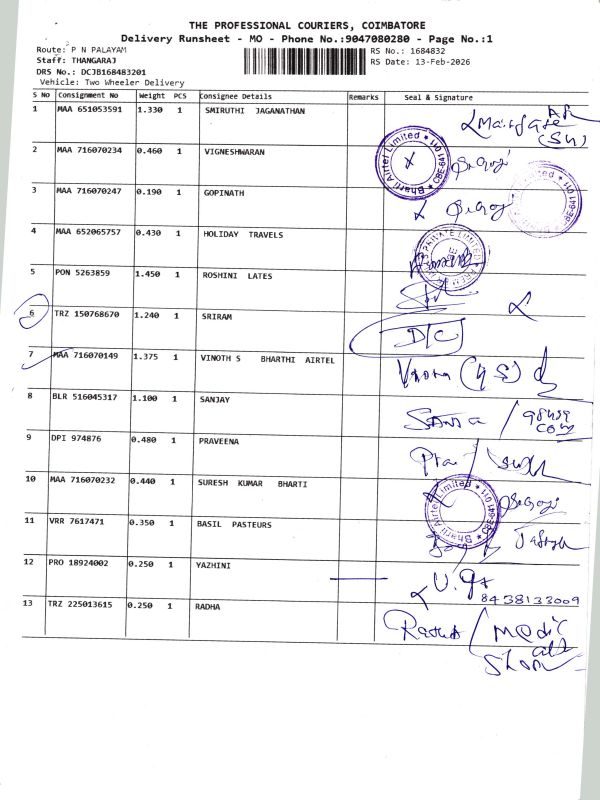 THE PROFESSIONAL COURIERS, COIMBATORE
Delivery Runsheet - MO - Phone No.:9047080280 - Page No.:1
Route: P N PALAYAM RS No.: 1684832
Staff: THANGARAJ RS Date: 13-Feb-2026
DRS No.: DCJB168483201
Vehicle: Two Wheeler Delivery
S No Consignment No Weight PCS Consignee Details Remarks Seal & Signature
1 MAA 651053591 1.330 1 SMIRUTHI JAGANATHAN
2 MAA 716070234 0.460 1 VIGNESHWARAN Bharti Airtel Limited
3 MAA 716070247 0.190 1 GOPINATH
4 MAA 652065757 0.430 1 HOLIDAY TRAVELS PRIVATE LIMITED
5 PON 5263859 1.450 1 ROSHINI LATES
6 TRZ 150768670 1.240 1 SRIRAM D/C
7 MAA 716070149 1.375 1 VINOTH S BHARTHI AIRTEL
8 BLR 516045317 1.100 1 SANJAY
9 DPI 974876 0.480 1 PRAVEENA
10 MAA 716070232 0.440 1 SURESH KUMAR BHARTI Bharti Airtel Limited
11 VRR 7617471 0.350 1 BASIL PASTEURS
12 PRO 18924002 0.250 1 YAZHINI
8438133009
13 TRZ 225013615 0.250 1 RADHA